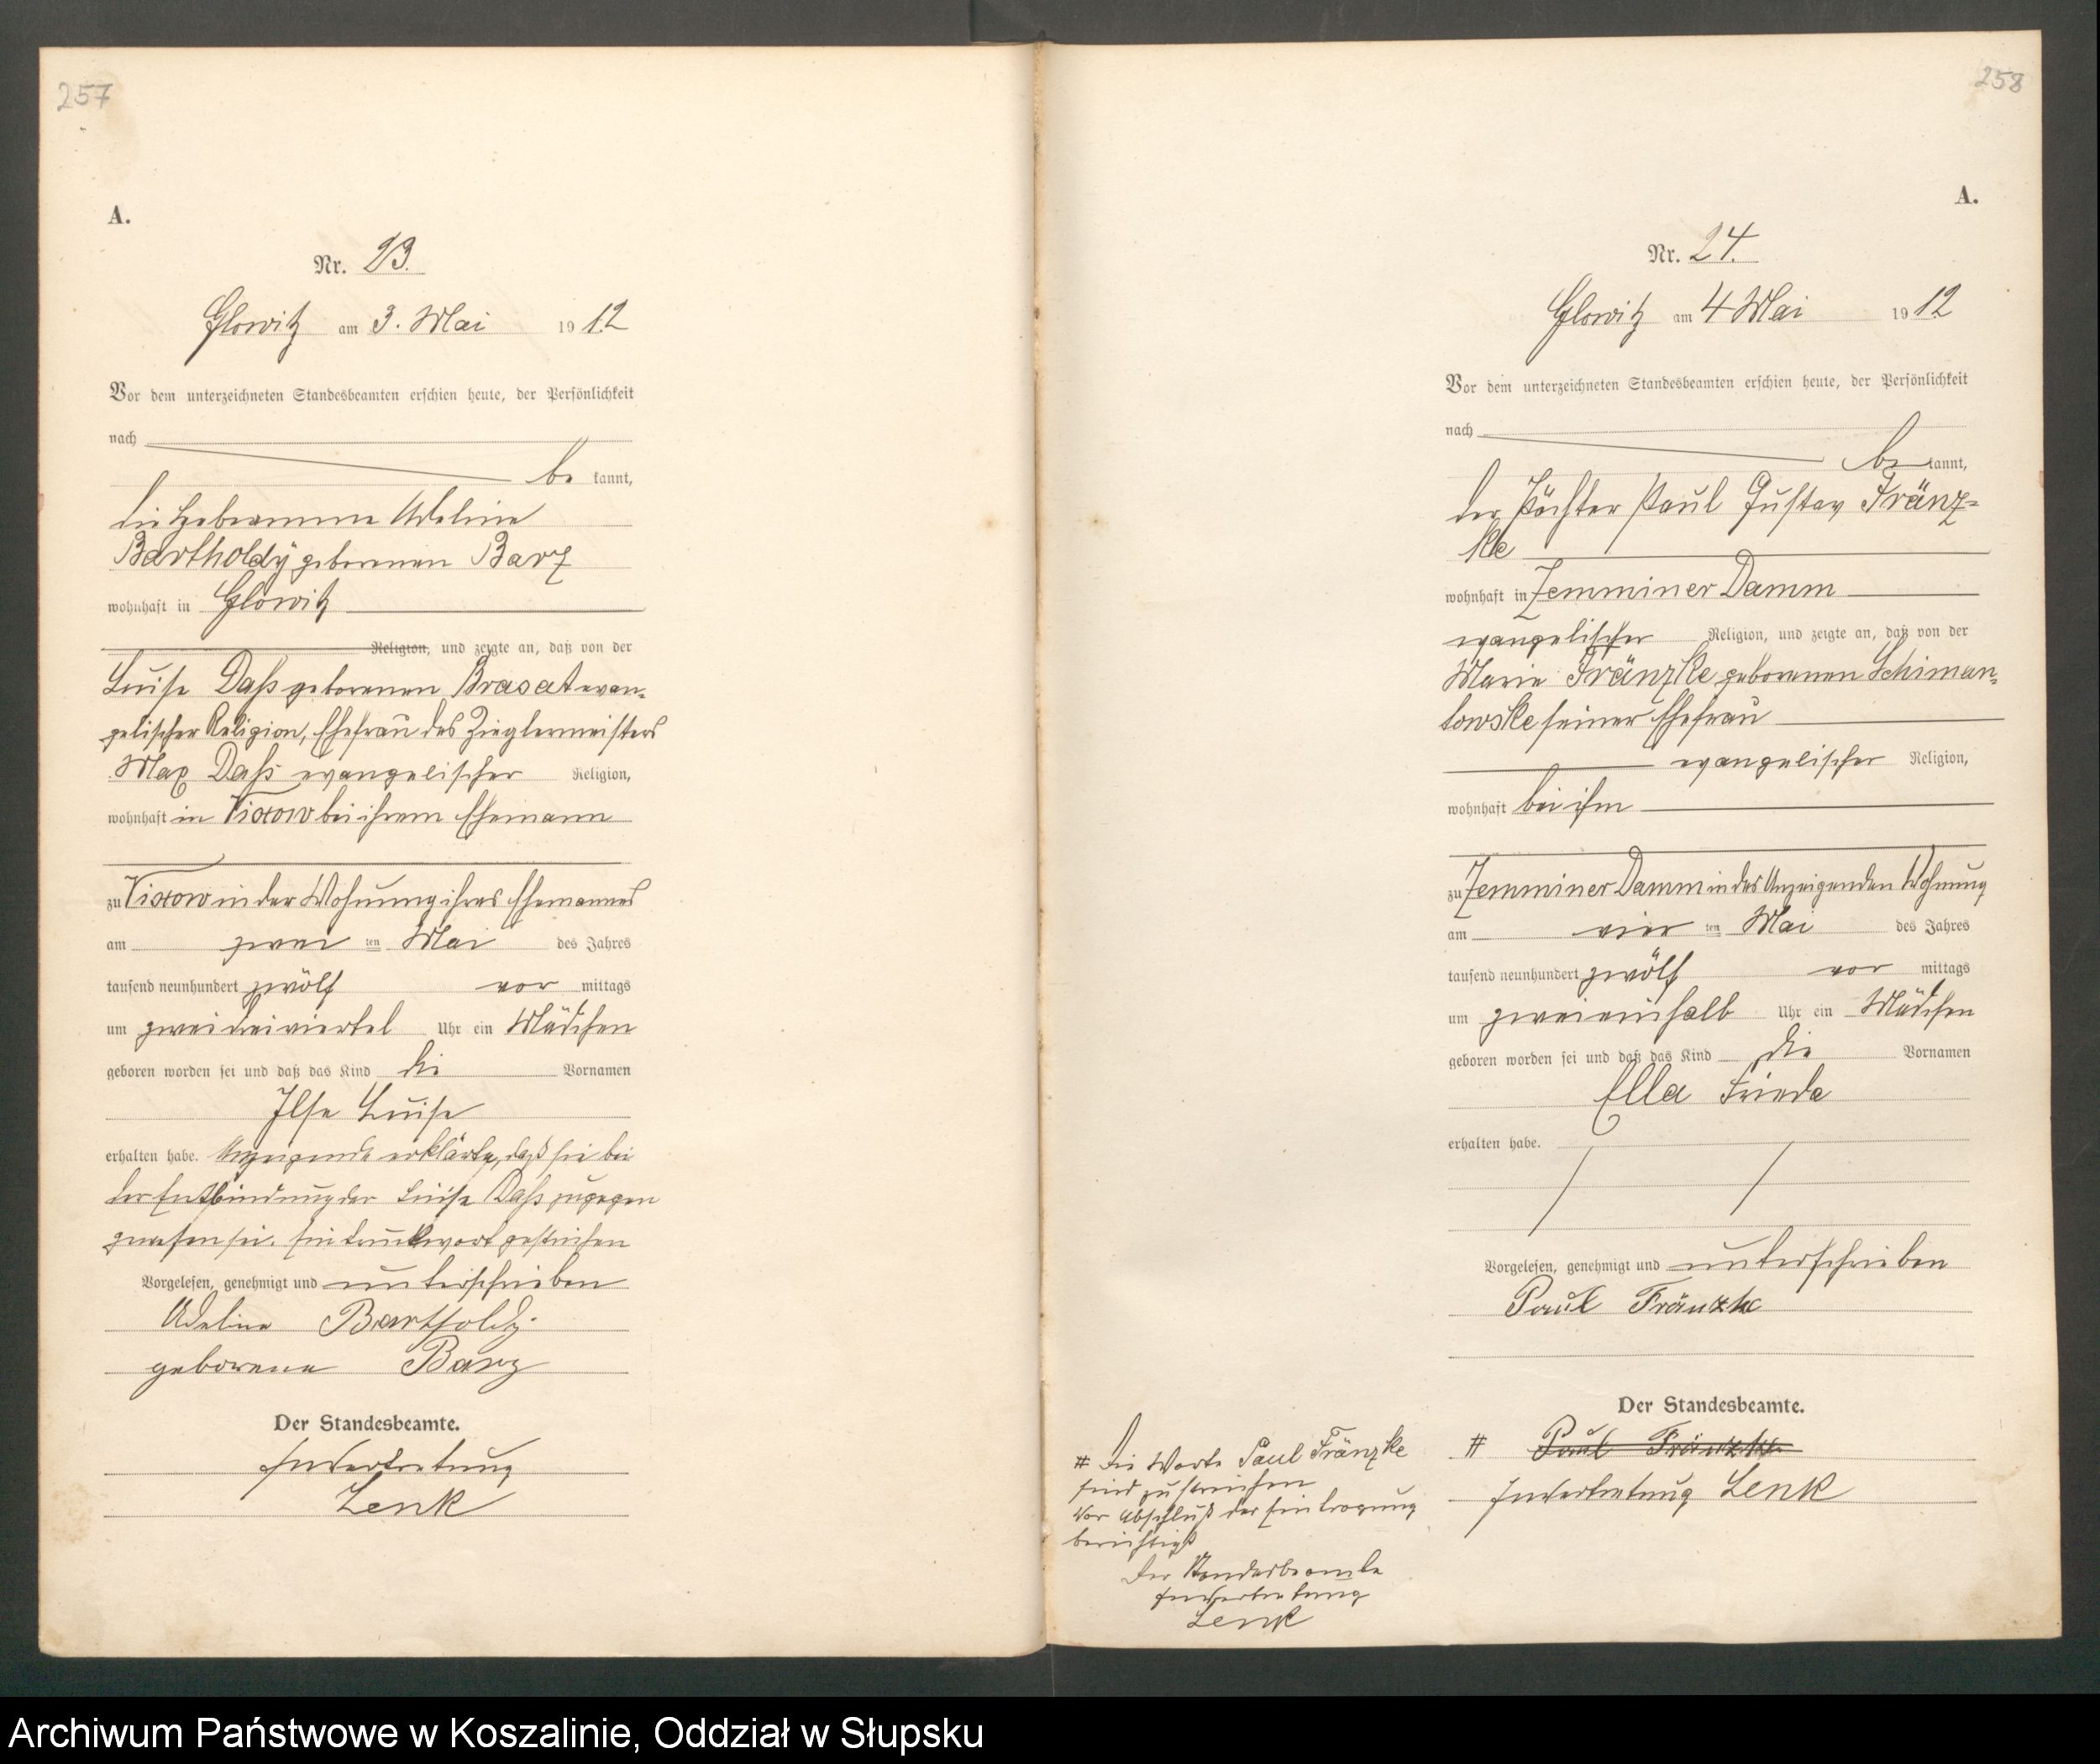 257
A.
Nr. 23.
Glowitz am 3. Mai 1912
Vor dem unterzeichneten Standesbeamten erschien heute, der Persönlichkeit
nach
be kannt,
die Hebeamme Adeline
Bartholdÿ geborenen Barz
wohnhaft in Glowitz
Religion, und zeigte an, daß von der
Luise Daß geborenen Brasat evan-
gelischer Religion, Ehefrau des Zieglermeisters
Max Daß evangelischer Religion,
wohnhaft in Vixow bei ihrem Ehemann
zu Vixow in der Wohnung ihres Ehemannes
am zwei ten Mai des Jahres
tausend neunhundert zwölf vor mittags
um zweidreiviertel Uhr ein Mädchen
geboren worden sei und daß das Kind die Vornamen
Ilse Luise
erhalten habe. Anzeigende erklärte, daß sie bei
der Entbindung der Luise Daß zugegen
gewesen sei. Ein Druckwort gestrichen
Vorgelesen, genehmigt und unterschrieben
Adeline Bartholdy
geborene Barz
Der Standesbeamte.
In Vertretung
Lenk
258
A.
Nr. 24.
Glowitz am 4 Mai 1912
Vor dem unterzeichneten Standesbeamten erschien heute, der Persönlichkeit
nach
be kannt,
der Pächter Paul Gustav Fränz-
ke
wohnhaft in Zemminer Damm
evangelischer Religion, und zeigte an, daß von der
Marie Fränzke geborenen Schiman-
towske seiner Ehefrau
evangelischer Religion,
wohnhaft bei ihm
zu Zemminer Damm in des Anzeigenden Wohnung
am vier ten Mai des Jahres
tausend neunhundert zwölf vor mittags
um zweieinhalb Uhr ein Mädchen
geboren worden sei und daß das Kind die Vornamen
Ella Frieda
erhalten habe.
Vorgelesen, genehmigt und unterschrieben
Paul Fränzke
Der Standesbeamte.
# Paul Fränzke
In Vertretung Lenk
# Die Worte Paul Fränzke
sind zu streichen
Vor Abschluß der Eintragung
berichtigt
Der Standesbeamte
In Vertretung
Lenk
Archiwum Państwowe w Koszalinie, Oddział w Słupsku